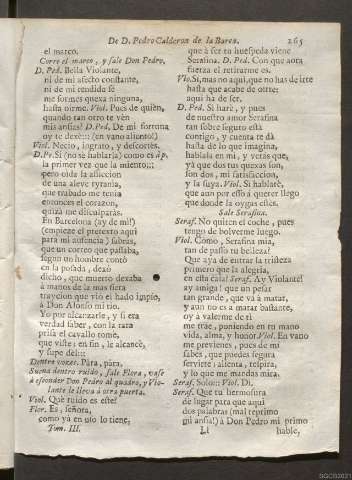 De D. Pedro Calderon de la Barca. 265
el marco.
Corre el marco, y sale Don Pedro.
D. Ped. Bella Violante,
ni de mi afecto constante,
ni de mi rendida fè
me formes quexa ninguna,
hasta oirme. Viol. Pues de quièn,
quando tan otro te vèn
mis ansias? D. Ped. De mi fortuna
oy te dexè:::- (en vano aliento!)
Viol. Necio, ingrato, y descortès.
D. Pe. Si (no sè hablarla) como es
la primer vez que la miento:::
pero oìda la asliccion
de una aleve tyrania,
que trabado me tenia
entonces el corazon,
quizà me disculparàs.
En Barcelona (ay de mi!)
(empieze el pretexto aqui
para mi ausencia) sabràs,
que un correo que passaba,
segun un hombre contò
en la posada, dexò
dicho, que muerto dexaba
à manos de la mas fiera
traycion que viò el hado impio,
à Don Alonso mi tio.
Yo por alcanzarle, y si era
verdad saber, con la rara
prisa el cavallo tomè,
que viste; en fin, le alcancè,
y supe dèl:::
Dentro voces. Pàra, pàra.
Suena dentro ruido, sale Flora, vase
à esconder Don Pedro al quadro, y Vio-
lante le lleva à otra puerta.
Viol. Què ruido es este?
Flor. Es, señora,
como yà en uso lo tiene,
Tom. III.
que à ser tu huespeda viene
Serafina. D. Ped. Con que aora
fuerza el retirarme es.
Vio. Si, mas no aqui, que no has de irte
hasta que acabe de oirte;
aqui ha de ser.
D. Ped. Si harè, y pues
de nuestro amor Serafina
tan sobre seguro està
contigo, y cuenta te dà
hasta de lo que imagina,
hablala en mi, y veràs que,
yà que dos tus quexas son,
son dos, mi satisfaccion,
y la suya. Viol. Si hablarè,
que aun por esso à querer llego
que donde la oygas estès.
Sale Serafina.
Seraf. No quiten el coche, pues
tengo de bolverme luego.
Viol. Còmo, Serafina mia,
tan de passo tu belleza?
Que aya de entrar la tristeza
primero que la alegria,
en esta casa! Seraf. Ay Violante!
ay amiga! que un pesar
tan grande, que và à matar,
y aun no es à matar bastante,
oy à valerme de ti
me trae, poniendo en tu mano
vida, alma, y honor. Viol. En vano
me previenes, pues de mi
sabes, que puedes segura
servirte; alienta, respira,
y lo que me mandas mira.
Seraf. Solo::: Viol. Dì.
Seraf. Que tu hermosura
dè lugar para que aqui
dos palabras (mal reprimo
mi ansia!) à Don Pedro mi primo
Ll hable,
SGCB2021